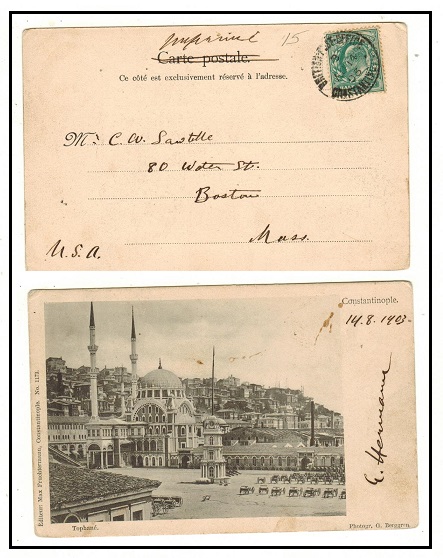 15
Carte postale.
Ce côté est exclusivement réservé à l'adresse.
BRITISH
Mr. C. W. Sawtelle
80 Water St.
Boston
Mass.
U.S.A.
Constantinople.
14.8.1903
E. Hermann
Editeur Max Fruchtermann, Constantinople. No. 1173
Tophané.
Photogr. G. Berggren.